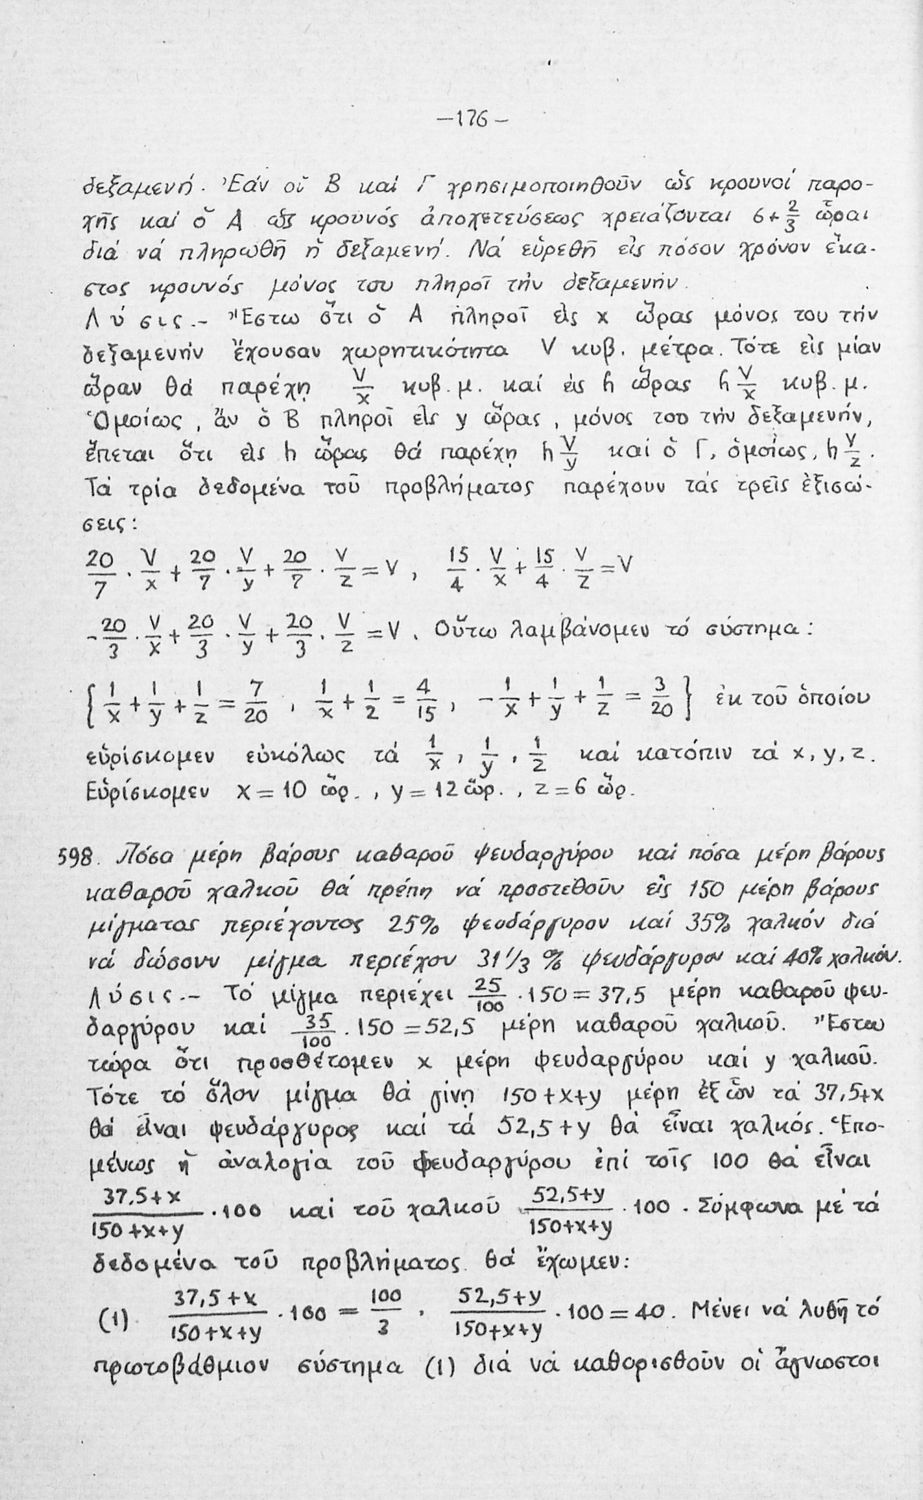 —176—
δεξαμενή. Ἐάν οἱ Β καί Γ χρησιμοποιηθοῦν ὡς κρουνοί παρο-
χῆς καί ὁ Α ὡς κρουνός ἀποχετεύσεως χρειάζονται 6+2/3 ὧραι
διά νά πληρωθῇ ἡ δεξαμενή. Νά εὑρεθῇ εἰς πόσον χρόνον ἕκα-
στος κρουνός μόνος του πληροῖ τήν δεξαμενήν.
Λύσις.- Ἔστω ὅτι ὁ Α πληροῖ εἰς x ὥρας μόνος του τήν
δεξαμενήν ἔχουσαν χωρητικότητα V κυβ. μέτρα. Τότε εἰς μίαν
ὥραν θά παρέχῃ V/x κυβ.μ. καί εἰς h ὥρας h V/x κυβ.μ.
Ὁμοίως, ἄν ὁ Β πληροῖ εἰς y ὥρας, μόνος του τήν δεξαμενήν,
ἕπεται ὅτι εἰς h ὥρας θά παρέχῃ h V/y καί ὁ Γ, ὁμοίως, h V/z.
Τά τρία δεδομένα τοῦ προβλήματος παρέχουν τάς τρεῖς ἐξισώ-
σεις:
20/7 · V/x + 20/7 · V/y + 20/7 · V/z = V, 15/4 · V/x + 15/4 · V/z = V
-20/3 · V/x + 20/3 · V/y + 20/3 · V/z = V. Οὕτω λαμβάνομεν τό σύστημα:
{1/x + 1/y + 1/z = 7/20, 1/x + 1/z = 4/15, -1/x + 1/y + 1/z = 3/20} ἐκ τοῦ ὁποίου
εὑρίσκομεν εὐκόλως τά 1/x, 1/y, 1/z καί κατόπιν τά x, y, z.
Εὑρίσκομεν x=10 ὥρ., y=12 ὥρ., z=6 ὥρ.
598. Πόσα μέρη βάρους καθαροῦ ψευδαργύρου καί πόσα μέρη βάρους
καθαροῦ χαλκοῦ θά πρέπῃ νά προστεθοῦν εἰς 150 μέρη βάρους
μίγματος περιέχοντος 25% ψευδάργυρον καί 35% χαλκόν διά
νά δώσουν μίγμα περιέχον 31 1/3 % ψευδάργυρον καί 40% χαλκόν.
Λύσις.- Τό μίγμα περιέχει 25/100 ·150=37,5 μέρη καθαροῦ ψευ-
δαργύρου καί 35/100 ·150=52,5 μέρη καθαροῦ χαλκοῦ. Ἔστω
τώρα ὅτι προσθέτομεν x μέρη ψευδαργύρου καί y χαλκοῦ.
Τότε τό ὅλον μίγμα θά γίνῃ 150+x+y μέρη ἐξ ὧν τά 37,5+x
θά εἶναι ψευδάργυρος καί τά 52,5+y θά εἶναι χαλκός. Ἑπο-
μένως ἡ ἀναλογία τοῦ ψευδαργύρου ἐπί τοῖς 100 θά εἶναι
37,5+x/150+x+y ·100 καί τοῦ χαλκοῦ 52,5+y/150+x+y ·100. Σύμφωνα μέ τά
δεδομένα τοῦ προβλήματος θά ἔχωμεν:
(1) 37,5+x/150+x+y ·100 = 100/3, 52,5+y/150+x+y ·100=40. Μένει νά λυθῇ τό
πρωτοβάθμιον σύστημα (1) διά νά καθορισθοῦν οἱ ἄγνωστοι